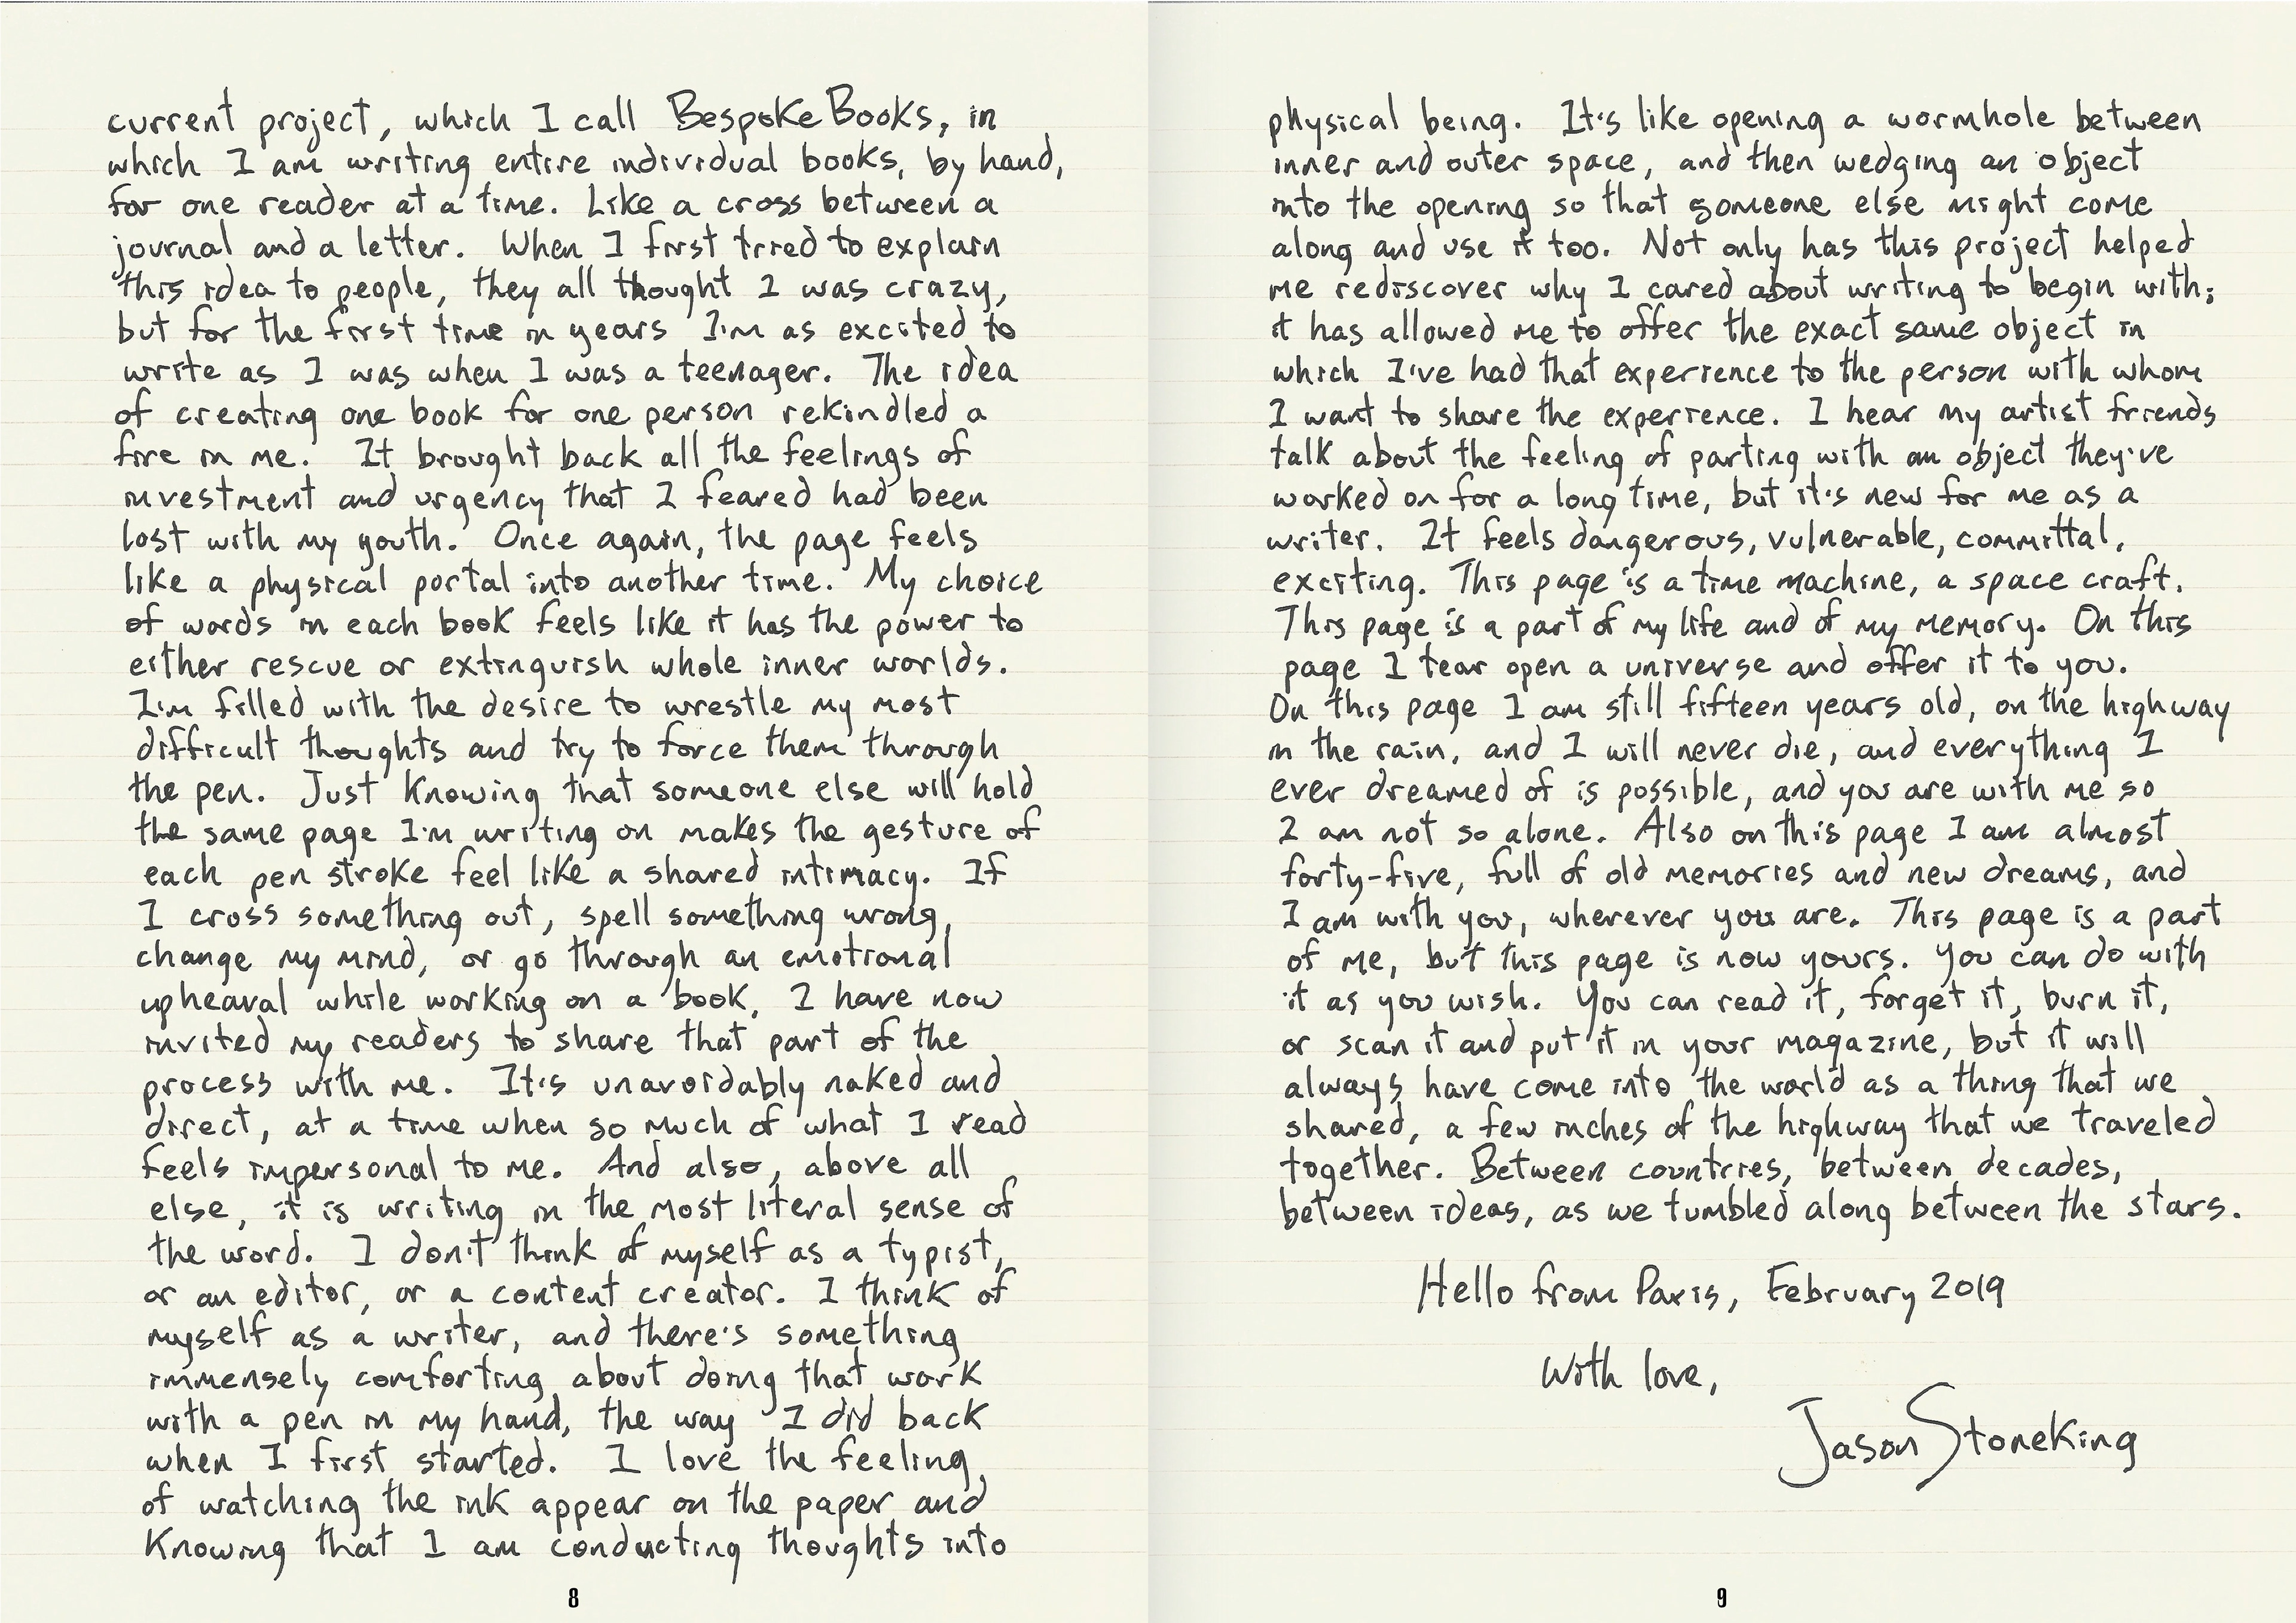 current project, which I call Bespoke Books, in
which I am writing entire individual books, by hand,
for one reader at a time. Like a cross between a
journal and a letter. When I first tried to explain
this idea to people, they all thought I was crazy,
but for the first time in years I'm as excited to
write as I was when I was a teenager. The idea
of creating one book for one person rekindled a
fire in me. It brought back all the feelings of
investment and urgency that I feared had been
lost with my youth. Once again, the page feels
like a physical portal into another time. My choice
of words in each book feels like it has the power to
either rescue or extinguish whole inner worlds.
I'm filled with the desire to wrestle my most
difficult thoughts and try to force them through
the pen. Just knowing that someone else will hold
the same page I'm writing on makes the gesture of
each pen stroke feel like a shared intimacy. If
I cross something out, spell something wrong,
change my mind, or go through an emotional
upheaval while working on a book, I have now
invited my readers to share that part of the
process with me. It's unavoidably naked and
direct, at a time when so much of what I read
feels impersonal to me. And also, above all
else, it is writing in the most literal sense of
the word. I don't think of myself as a typist,
or an editor, or a content creator. I think of
myself as a writer, and there's something
immensely comforting about doing that work
with a pen in my hand, the way I did back
when I first started. I love the feeling
of watching the ink appear on the paper and
knowing that I am conducting thoughts into
8
physical being. It's like opening a wormhole between
inner and outer space, and then wedging an object
into the opening so that someone else might come
along and use it too. Not only has this project helped
me rediscover why I cared about writing to begin with;
it has allowed me to offer the exact same object in
which I've had that experience to the person with whom
I want to share the experience. I hear my artist friends
talk about the feeling of parting with an object they've
worked on for a long time, but it's new for me as a
writer. It feels dangerous, vulnerable, committal,
exciting. This page is a time machine, a space craft.
This page is a part of my life and of my memory. On this
page I tear open a universe and offer it to you.
On this page I am still fifteen years old, on the highway
in the rain, and I will never die, and everything I
ever dreamed of is possible, and you are with me so
I am not so alone. Also on this page I am almost
forty-five, full of old memories and new dreams, and
I am with you, wherever you are. This page is a part
of me, but this page is now yours. You can do with
it as you wish. You can read it, forget it, burn it,
or scan it and put it in your magazine, but it will
always have come into the world as a thing that we
shared, a few inches of the highway that we traveled
together. Between countries, between decades,
between ideas, as we tumbled along between the stars.
Hello from Paris, February 2019
With love,
Jason Stoneking
9